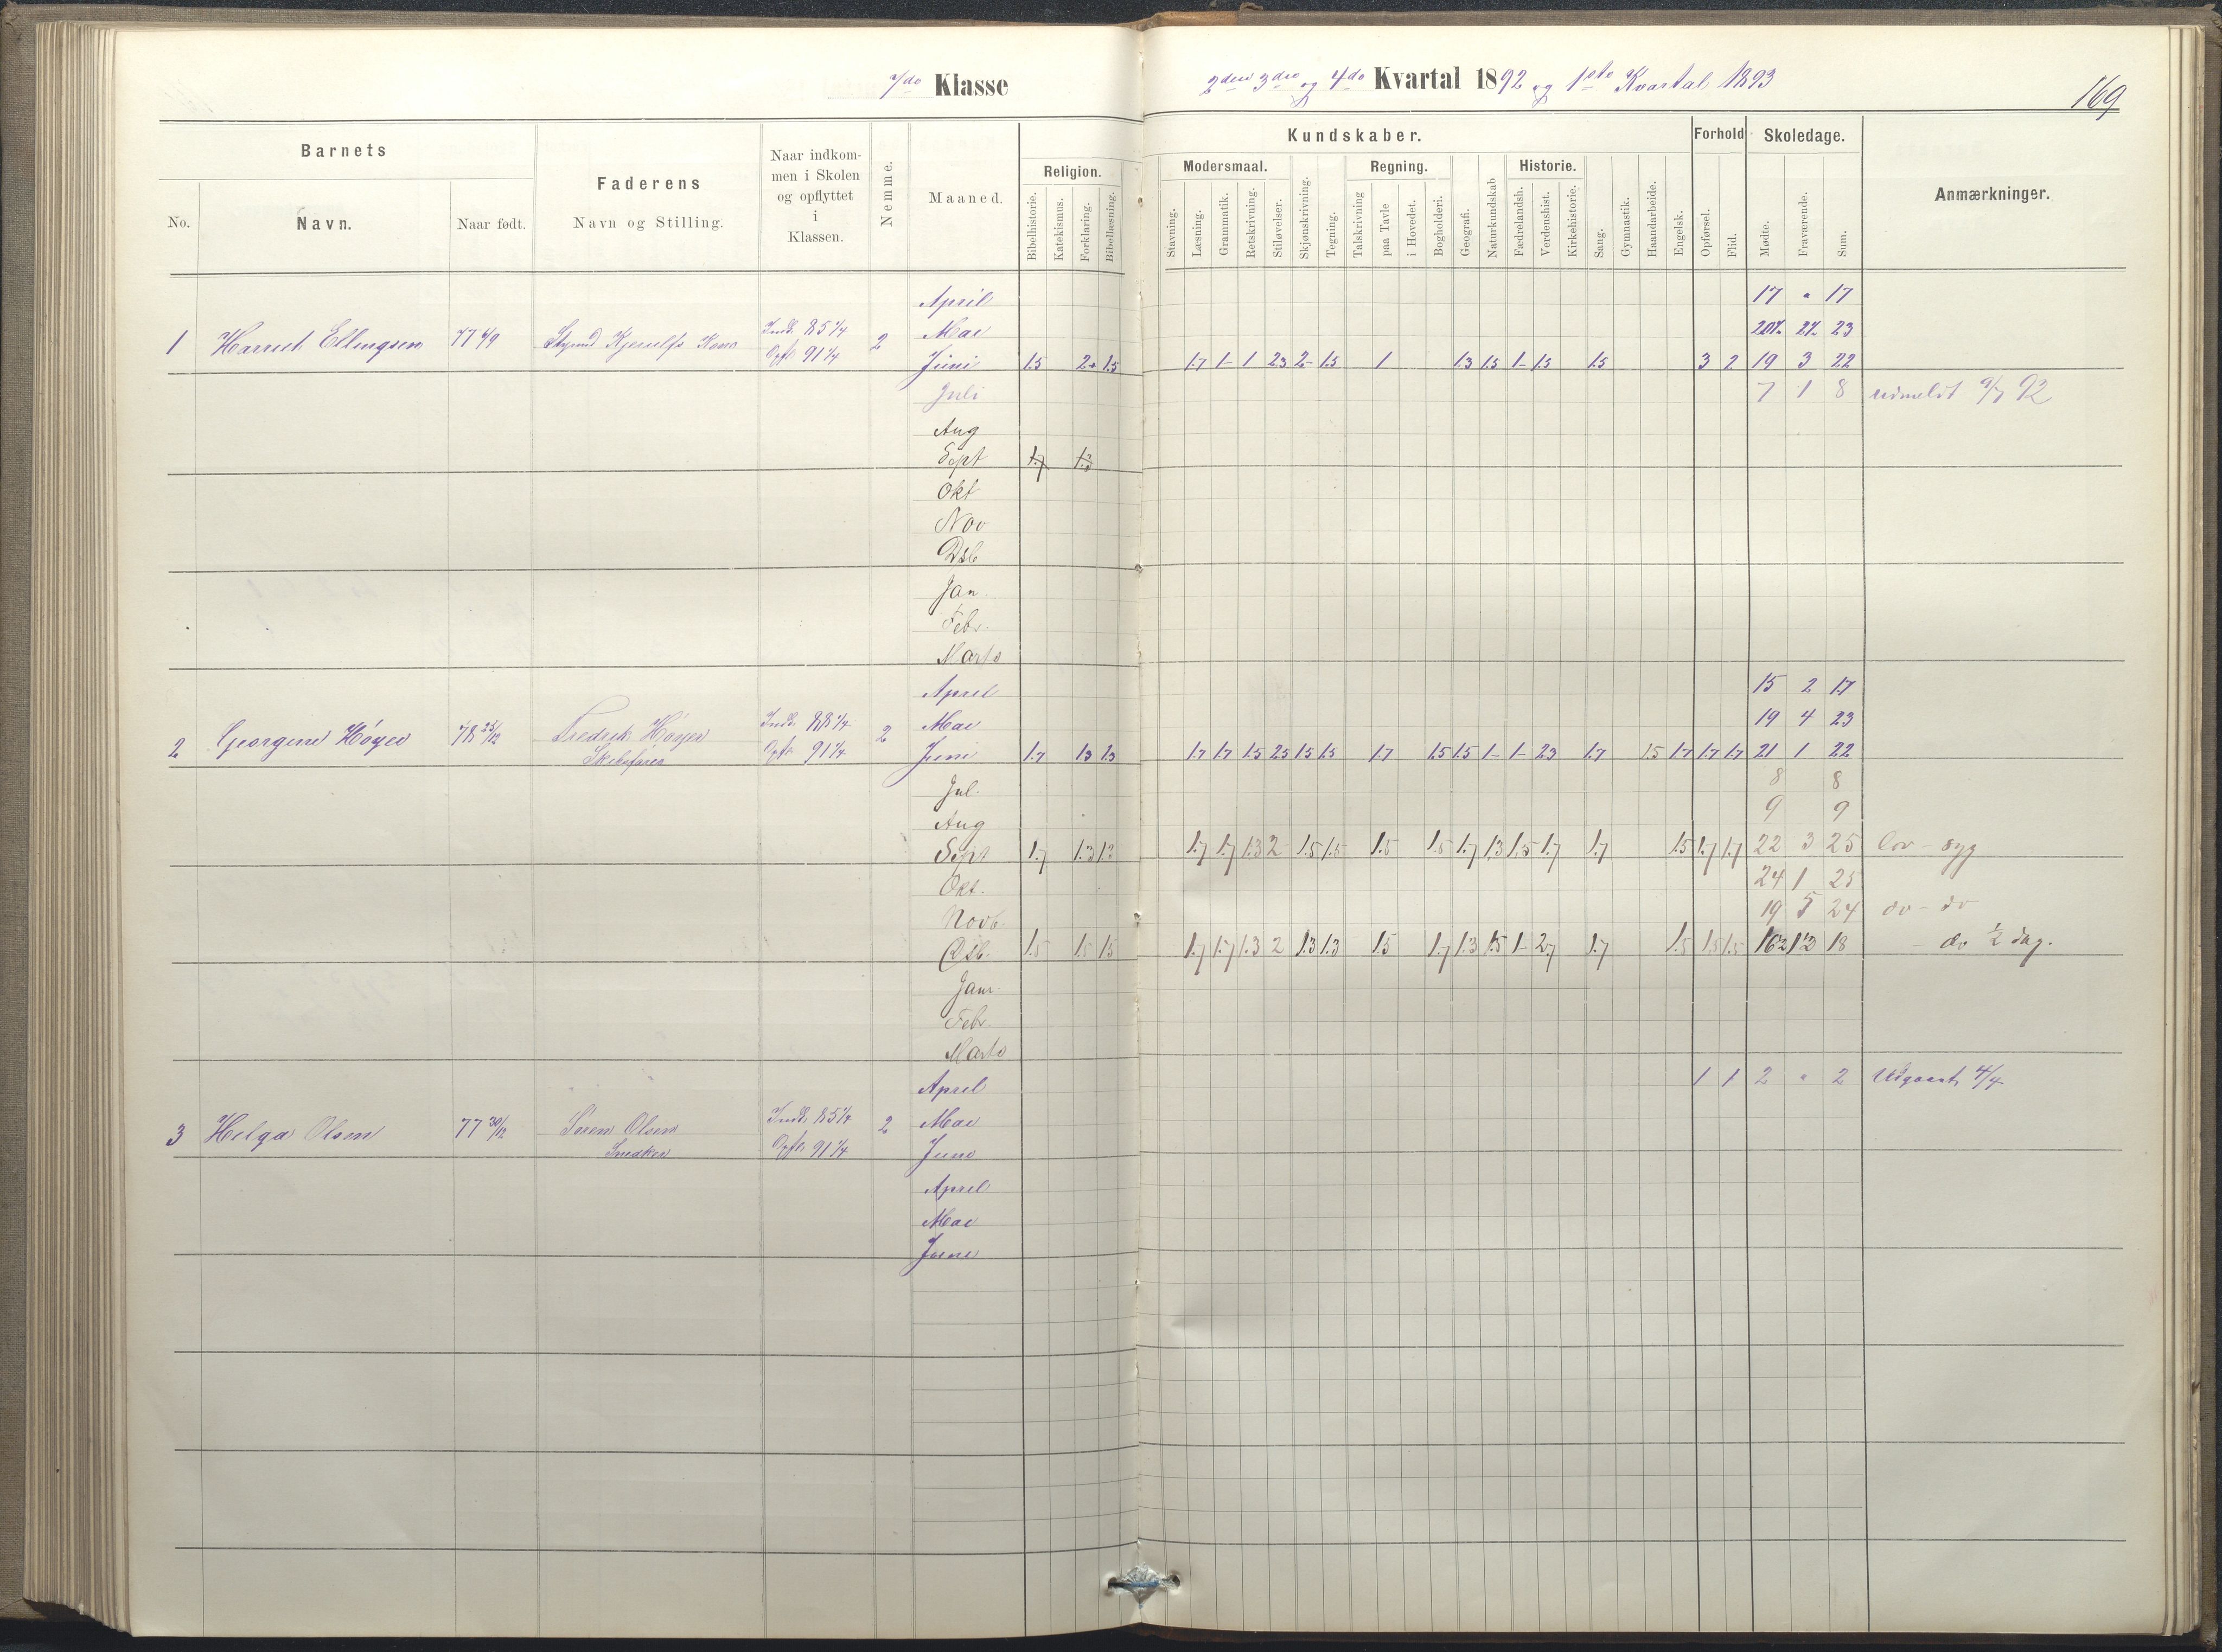 7de Klasse 2den 3die og 4de Kvartal 1892 og 1ste Kvartal 1893
169
Barnets
Faderens
Naar indkommen i Skolen og opflyttet i Klassen.
Nemme.
Maaned.
Kundskaber.
Forhold
Skoledage.
Anmærkninger.
No.
Navn.
Naar født.
Navn og Stilling.
Religion.
Modersmaal.
Regning.
Historie.
Bibelhistorie.
Katekismus.
Forklaring.
Bibellæsning.
Stavning.
Læsning.
Grammatik.
Retskrivning.
Stiløvelser.
Skjønskrivning.
Tegning.
Talskrivning
paa Tavle
i Hovedet.
Bogholderi.
Geografi.
Naturkundskab
Fædrelandsh.
Verdenshist.
Kirkehistorie.
Sang.
Gymnastik.
Haandarbeide.
Engelsk.
Opførsel.
Flid.
Mødte.
Fraværende.
Sum.
April 17 " 17
1 Harriet Ellingsen 77 4/9 Indk. 85 1/4 2 Mai 20½ 2½ 23
Opfl. 91 1/4 Juni 1.5 2- 1.5 1.7 1- 1 2.3 2- 1.5 1 1.3 1.5 1- 1.5 1.5 3 2 19 3 22
Juli 7 1 8 udmeldt 9/7 92
Aug
Sept 1.7 1.3
Okt
Nov
Dsb
Jan.
Febr.
Marts
April 15 2 17
2 Georgine Høyer 78 25/12 Fredrik Høyer Indk. 88 1/4 2 Mai 19 4 23
Opfl. 91 1/4 Juni 1.7 1.3 1.3 1.7 1.7 1.5 2.5 1.5 1.5 1.7 1.5 1.5 1- 1- 2.3 1.7 1.5 1.7 1.7 1.7 21 1 22
Jul. 8 8
Aug 9 9
Sept 1.7 1.3 1.3 1.7 1.7 1.3 2 1.5 1.5 1.5 1.5 1.7 1.3 1.5 1.7 1.7 1.5 1.7 1.7 22 3 25 lov - syg
Okt. 24 1 25
Novb. 19 5 24 do - do
Dsb. 1.5 1.5 1.5 1.7 1.7 1.3 2 1.3 1.3 1.5 1.7 1.3 1.5 1- 2.7 1.7 1.5 1.5 1.5 16½ 1½ 18 do ½ dag.
Janr.
Febr.
Marts
April 1 1 2 " 2 Udgaaet 4/4
3 Helga Olsen 77 30/12 Søren Olsen Indk. 85 1/4 2 Mai
Snedker Opfl. 91 1/4 Juni
April
Mai
Juni